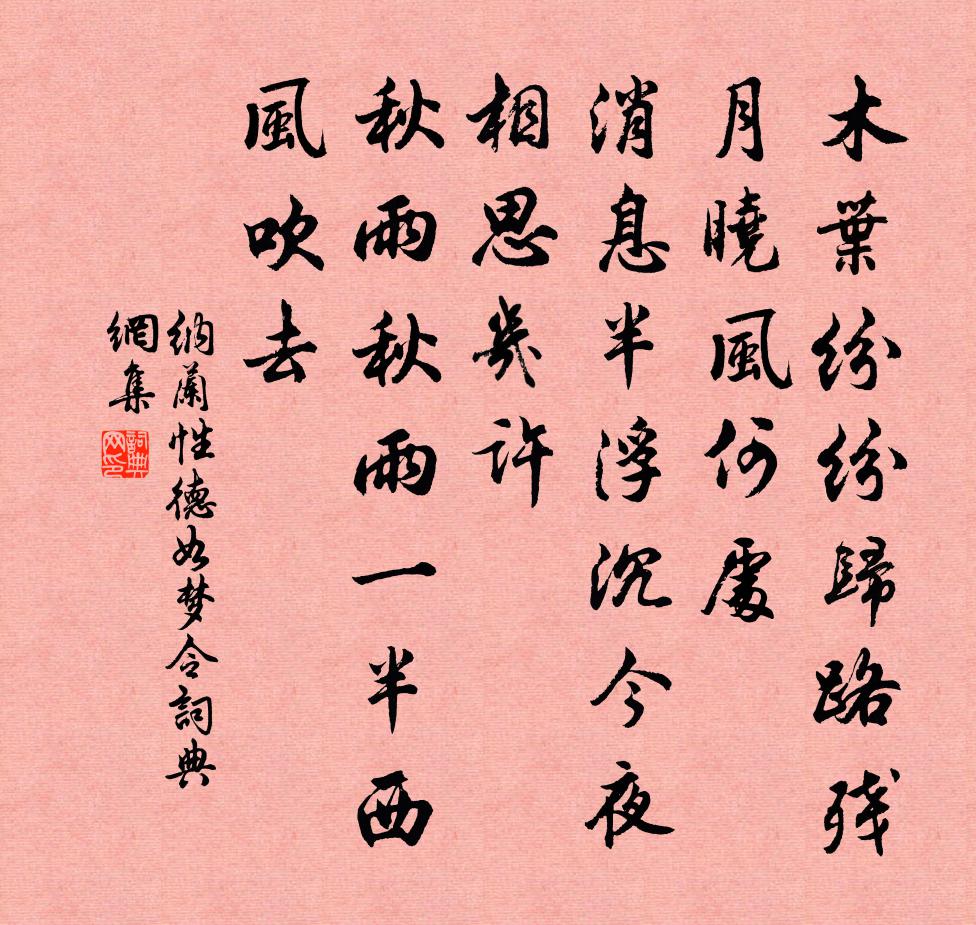 木葉紛紛歸路残
月曉風何處
消息半浮沉今夜
相思幾許
秋雨秋雨一半西
風吹去
納蘭性德如梦令詞典
網集
詞典网印